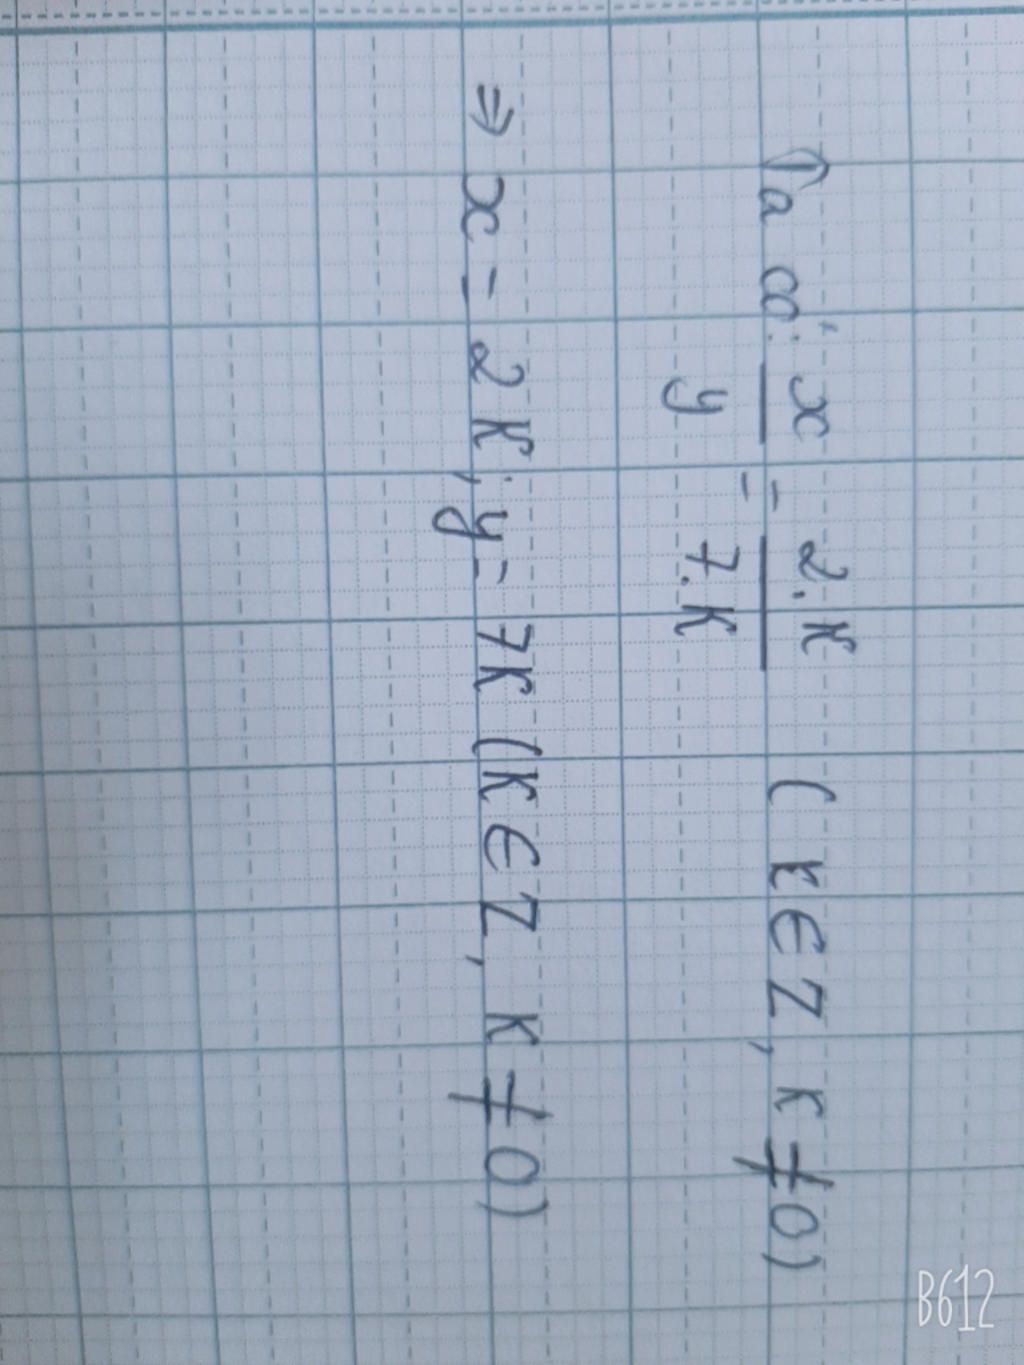 Ta có: x/y = 2.K/7.K (K∈Z, K≠0)
⇒ x = 2K; y = 7K (K∈Z, K≠0)
B612